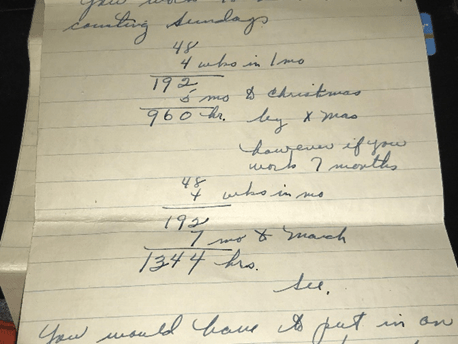 You work
counting Sundays
48
4 wks in 1 mo
192
5 mo to Christmas
960 hr. by Xmas
however if you
work 7 months
48
4 wks in mo
192
7 mo to March
1344 hrs.
See.
You would have to put in an